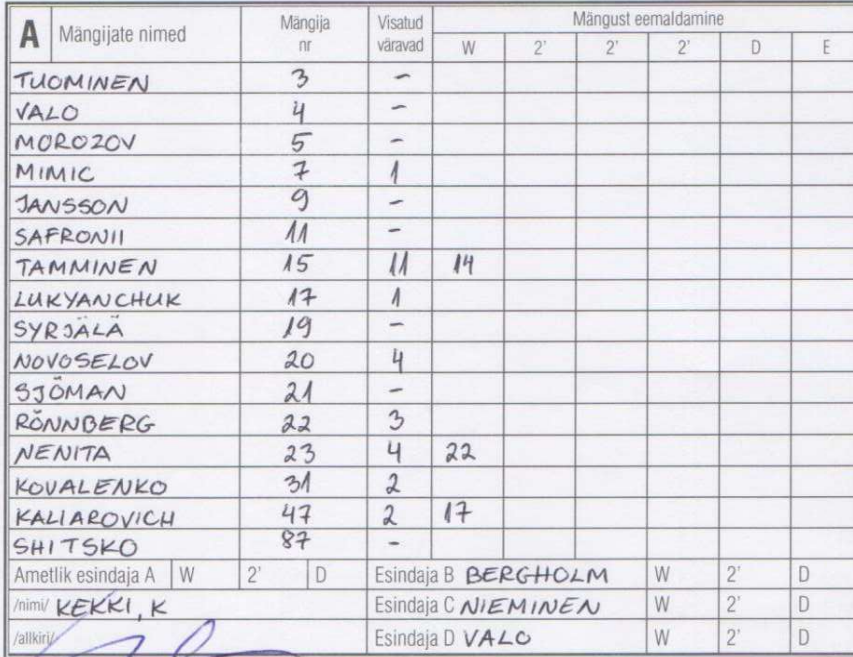 A Mängijate nimed Mängija nr Visatud väravad Mängust eemaldamine
W 2' 2' 2' D E
TUOMINEN 3 -
VALO 4 -
MOROZOV 5 -
MIMIC 7 1
JANSSON 9 -
SAFRONII 11 -
TAMMINEN 15 11 14
LUKYANCHUK 17 1
SYRJÄLÄ 19 -
NOVOSELOV 20 4
SJÖMAN 21 -
RÖNNBERG 22 3
NENITA 23 4 22
KOVALENKO 31 2
KALIAROVICH 47 2 17
SHITSKO 87 -
Ametlik esindaja A W 2' D Esindaja B BERGHOLM W 2' D
/nimi/ KEKKI, K Esindaja C NIEMINEN W 2' D
/allkiri/ Esindaja D VALO W 2' D